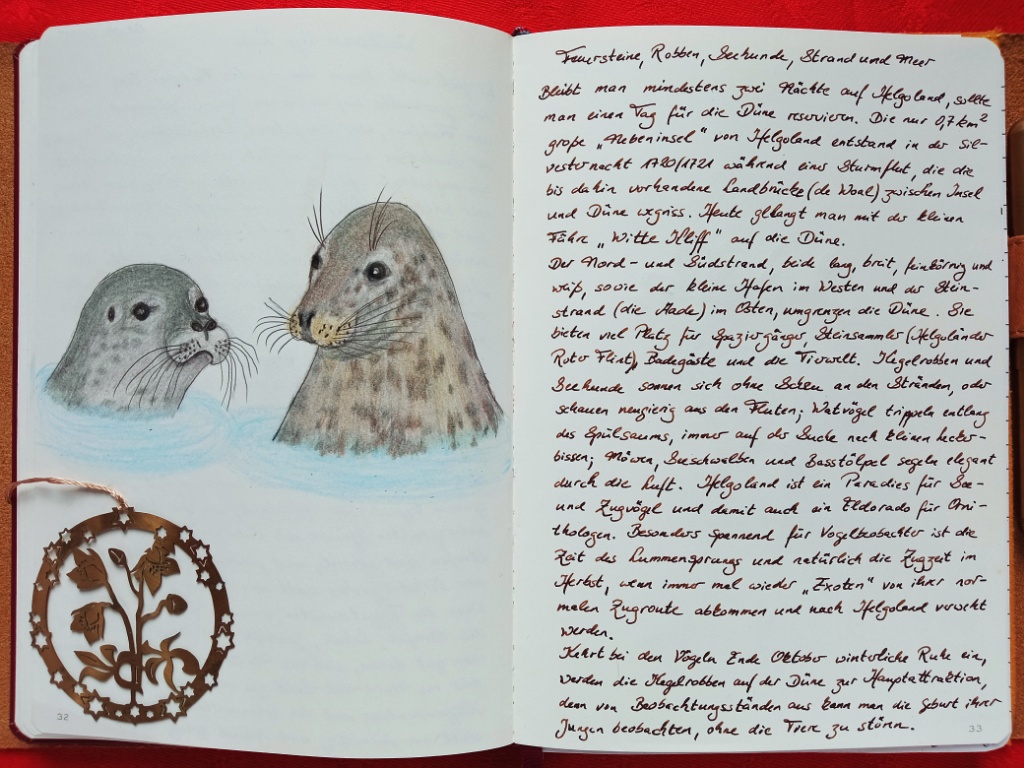 Feuersteine, Robben, Seehunde, Strand und Meer
Bleibt man mindestens zwei Nächte auf Helgoland, sollte
man einen Tag für die Düne reservieren. Die nur 0,7 km²
große „Nebeninsel" von Helgoland entstand in der Sil-
vesternacht 1720/1721 während einer Sturmflut, die die
bis dahin vorhandene Landbrücke (de Woal) zwischen Insel
und Düne wegriss. Heute gelangt man mit der kleinen
Fähre „Witte Kliff" auf die Düne.
Der Nord- und Südstrand, beide lang, breit, feinkörnig und
weiß, sowie der kleine Hafen im Westen und der Stein-
strand (die Aade) im Osten, umgrenzen die Düne. Sie
bieten viel Platz für Spaziergänger, Steinsammler (Helgoländer
Roter Flint), Badegäste und die Tierwelt. Kegelrobben und
Seehunde sonnen sich ohne Scheu an den Stränden, oder
schauen neugierig aus den Fluten; Watvögel trippeln entlang
des Spülsaums, immer auf der Suche nach kleinen Lecker-
bissen; Möwen, Seeschwalben und Basstölpel segeln elegant
durch die Luft. Helgoland ist ein Paradies für See-
und Zugvögel und damit auch ein Eldorado für Orni-
thologen. Besonders spannend für Vogelbeobachter ist die
Zeit des Lummensprungs und natürlich die Zugzeit im
Herbst, wenn immer mal wieder „Exoten" von ihrer nor-
malen Zugroute abkommen und nach Helgoland verweht
werden.
Kehrt bei den Vögeln Ende Oktober winterliche Ruhe ein,
werden die Kegelrobben auf der Düne zur Hauptattraktion,
denn von Beobachtungsständen aus kann man die Geburt ihrer
Jungen beobachten, ohne die Tiere zu stören.
32
33